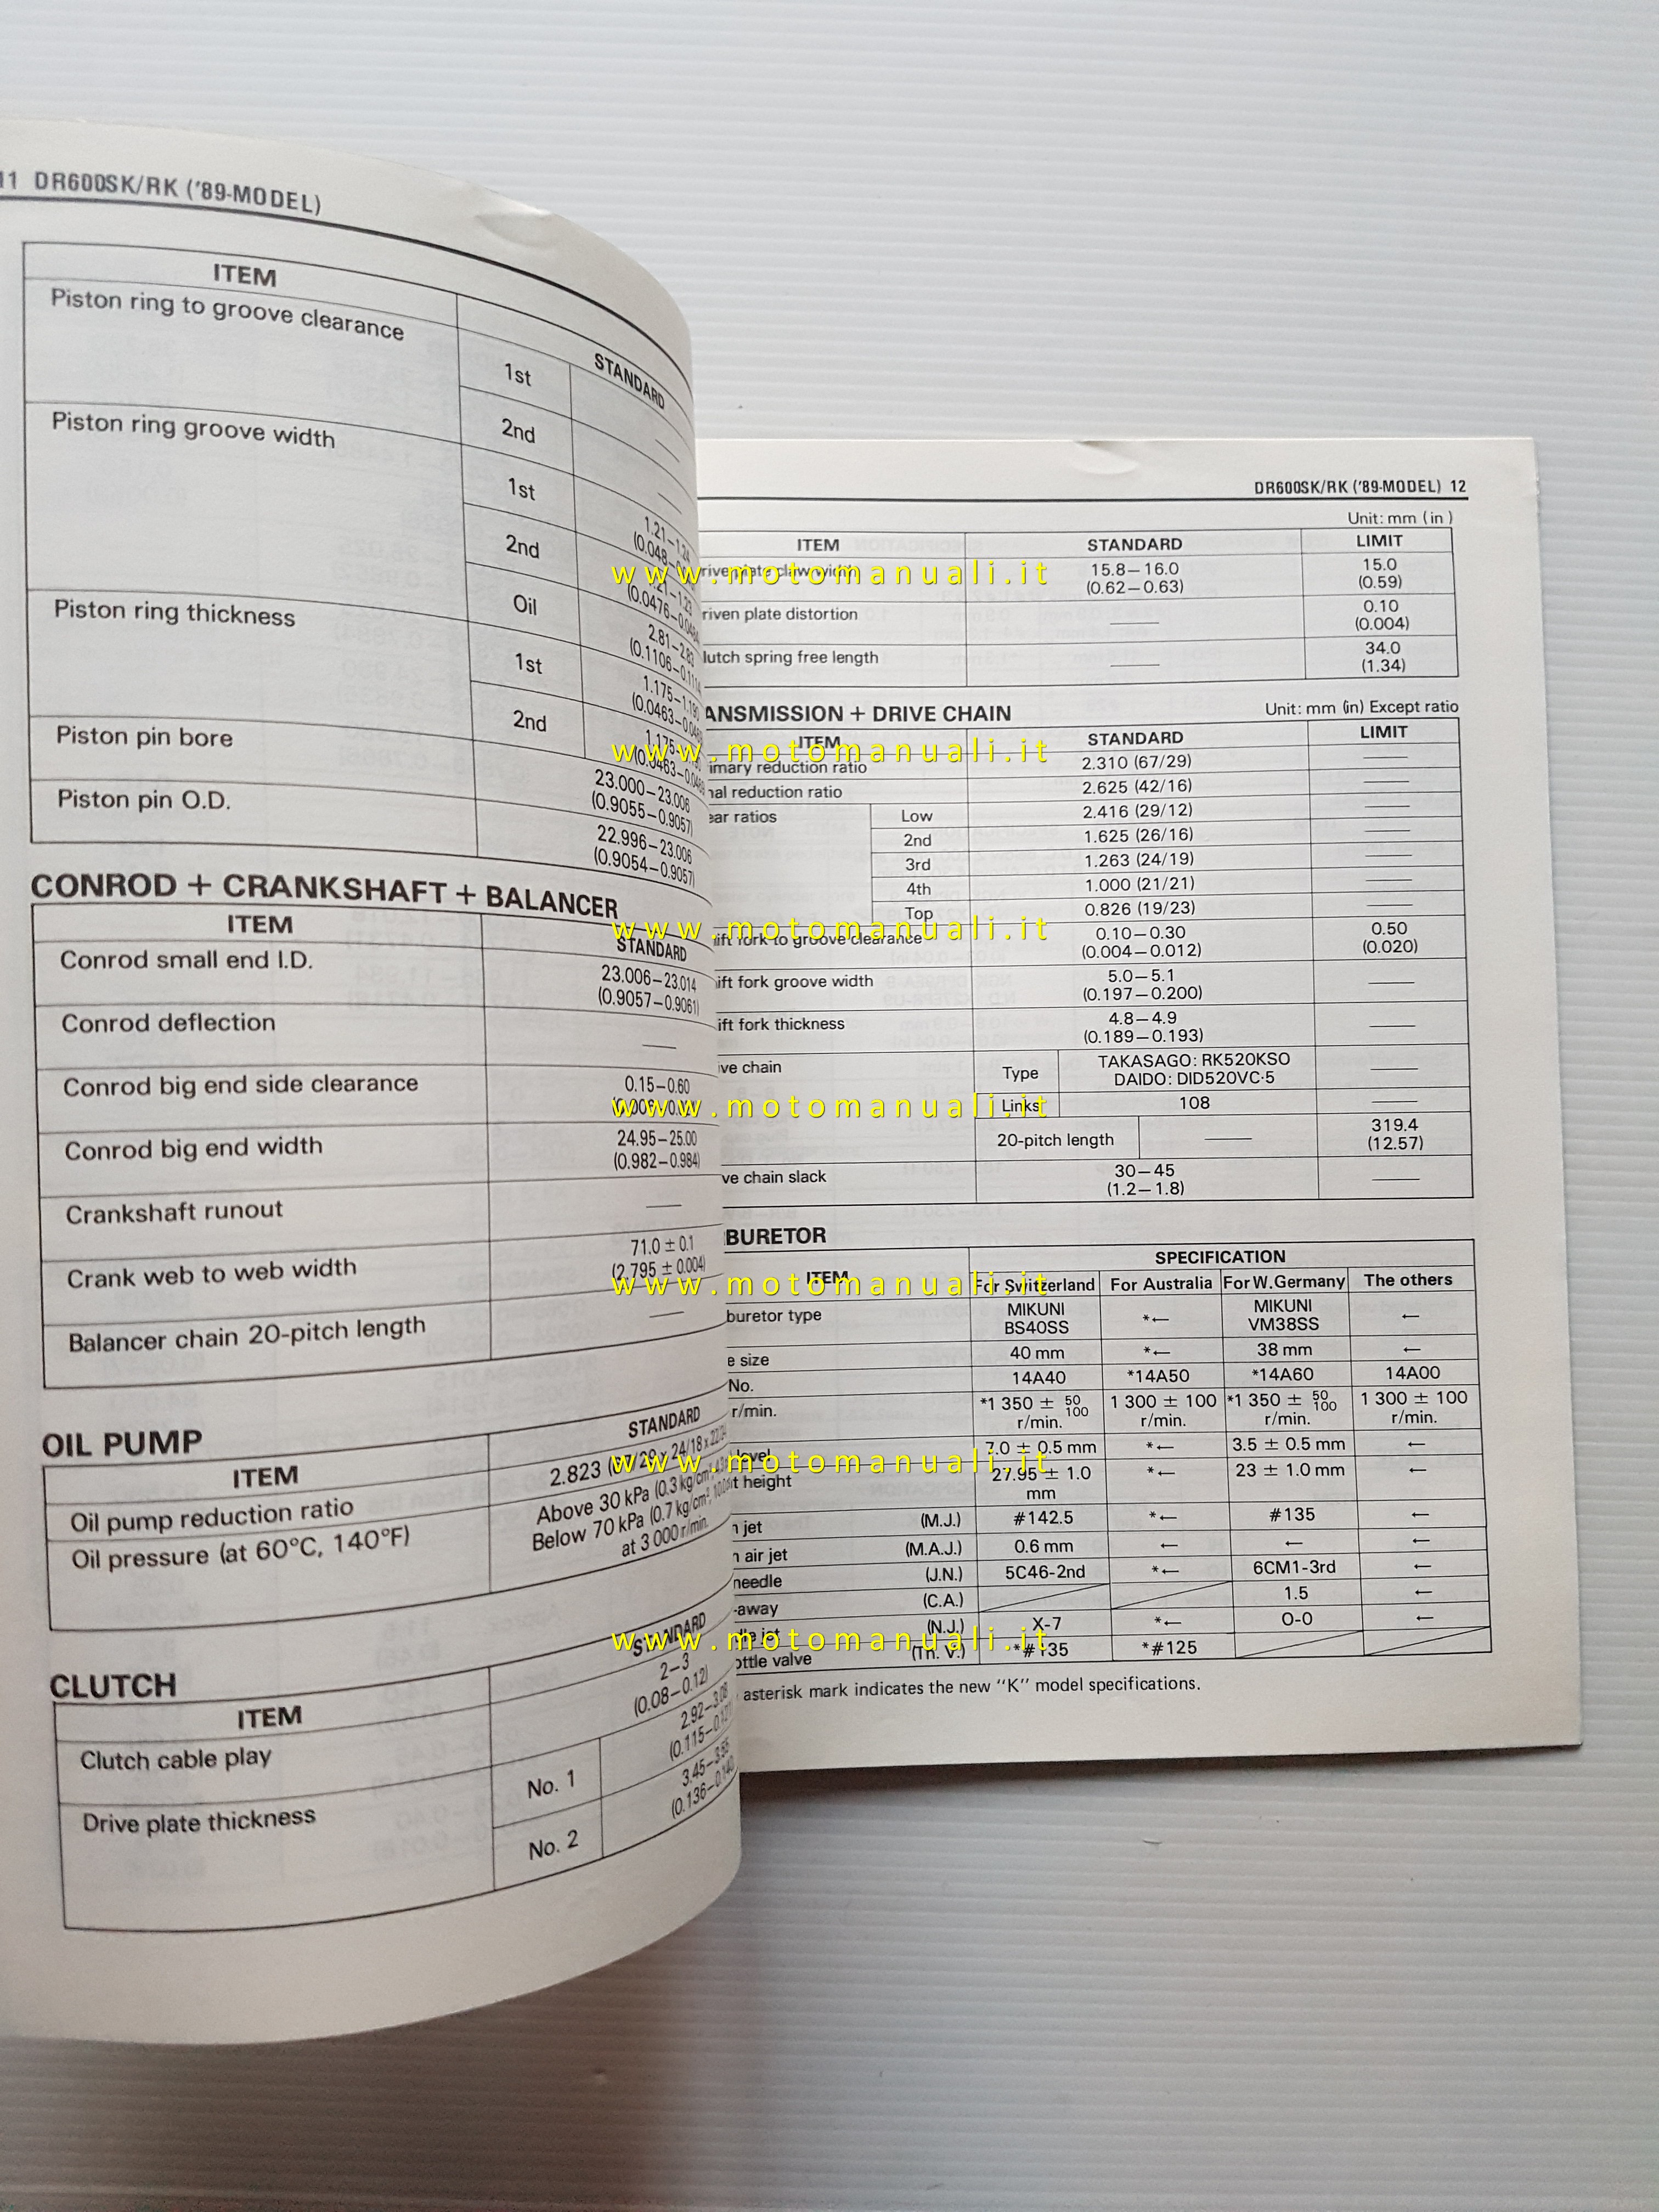 11 DR600SK/RK ('89-MODEL)
ITEM STANDARD
Piston ring to groove clearance 1st ——
2nd ——
Piston ring groove width 1st 1.21–1.24
2nd
(0.0476–
Oil 2.81–2.83
(0.1106–0.1114
Piston ring thickness 1st 1.175–1.190
(0.0463–
2nd
Piston pin bore 23.000–23.006
(0.9055–0.9057)
Piston pin O.D. 22.996–23.006
(0.9054–0.9057)
CONROD + CRANKSHAFT + BALANCER
ITEM STANDARD
Conrod small end I.D. 23.006–23.014
(0.9057–0.9061)
Conrod deflection ——
Conrod big end side clearance 0.15–0.60
Conrod big end width 24.95–25.00
(0.982–0.984)
Crankshaft runout ——
Crank web to web width 71.0 ± 0.1
(2.795 ± 0.004)
Balancer chain 20-pitch length ——
OIL PUMP
ITEM STANDARD
Oil pump reduction ratio 2.823
Oil pressure (at 60°C, 140°F) Above 30 kPa (0.3 kg/cm²,
Below 70 kPa (0.7 kg/cm²,
at 3 000 r/min.
CLUTCH
ITEM STANDARD
Clutch cable play 2–3
(0.08–0.12)
Drive plate thickness No. 1 2.92–3.08
(0.115–0.121)
No. 2 3.45–3.55
(0.136–0.140)
DR600SK/RK ('89-MODEL) 12
Unit: mm (in)
ITEM STANDARD LIMIT
rive plate claw width 15.8–16.0 15.0
(0.62–0.63) (0.59)
riven plate distortion —— 0.10
(0.004)
lutch spring free length —— 34.0
(1.34)
ANSMISSION + DRIVE CHAIN Unit: mm (in) Except ratio
ITEM STANDARD LIMIT
imary reduction ratio 2.310 (67/29) ——
nal reduction ratio 2.625 (42/16) ——
ear ratios Low 2.416 (29/12) ——
2nd 1.625 (26/16) ——
3rd 1.263 (24/19) ——
4th 1.000 (21/21) ——
Top 0.826 (19/23) ——
ift fork to groove clearance 0.10–0.30 0.50
(0.004–0.012) (0.020)
ift fork groove width 5.0–5.1 ——
(0.197–0.200)
ift fork thickness 4.8–4.9 ——
(0.189–0.193)
ive chain Type TAKASAGO: RK520KSO ——
DAIDO: DID520VC·5
Links 108 ——
20-pitch length —— 319.4
(12.57)
ve chain slack 30–45 ——
(1.2–1.8)
BURETOR
ITEM SPECIFICATION
For Switzerland For Australia For W.Germany The others
buretor type MIKUNI BS40SS *← MIKUNI VM38SS ←
e size 40 mm *← 38 mm ←
No. 14A40 *14A50 *14A60 14A00
r/min. *1 350 ± 50 100 r/min. 1 300 ± 100 r/min. *1 350 ± 50 100 r/min. 1 300 ± 100 r/min.
level 7.0 ± 0.5 mm *← 3.5 ± 0.5 mm ←
t height 27.95 ± 1.0 mm *← 23 ± 1.0 mm ←
n jet (M.J.) #142.5 *← #135 ←
n air jet (M.A.J.) 0.6 mm ← ← ←
needle (J.N.) 5C46-2nd *← 6CM1-3rd ←
-away (C.A.) 1.5 ←
jet (N.J.) X-7 *← O-0 ←
ottle valve (Th. V.) *#135 *#125
asterisk mark indicates the new "K" model specifications.
www.motomanuali.it
www.motomanuali.it
www.motomanuali.it
www.motomanuali.it
www.motomanuali.it
www.motomanuali.it
www.motomanuali.it